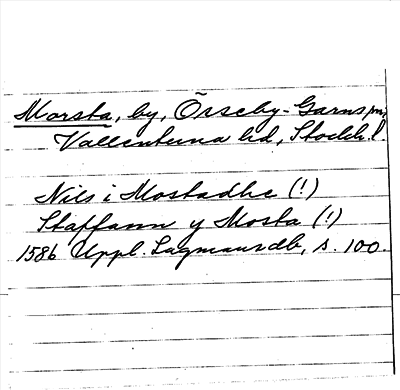 Morsta, by, Össeby-Garns sn,
Vallentuna hd, Stockh. l.
Nils i Mostadhe (!)
Staffann y Mosta (!)
1586 Uppl. Lagmansdb, s. 100.